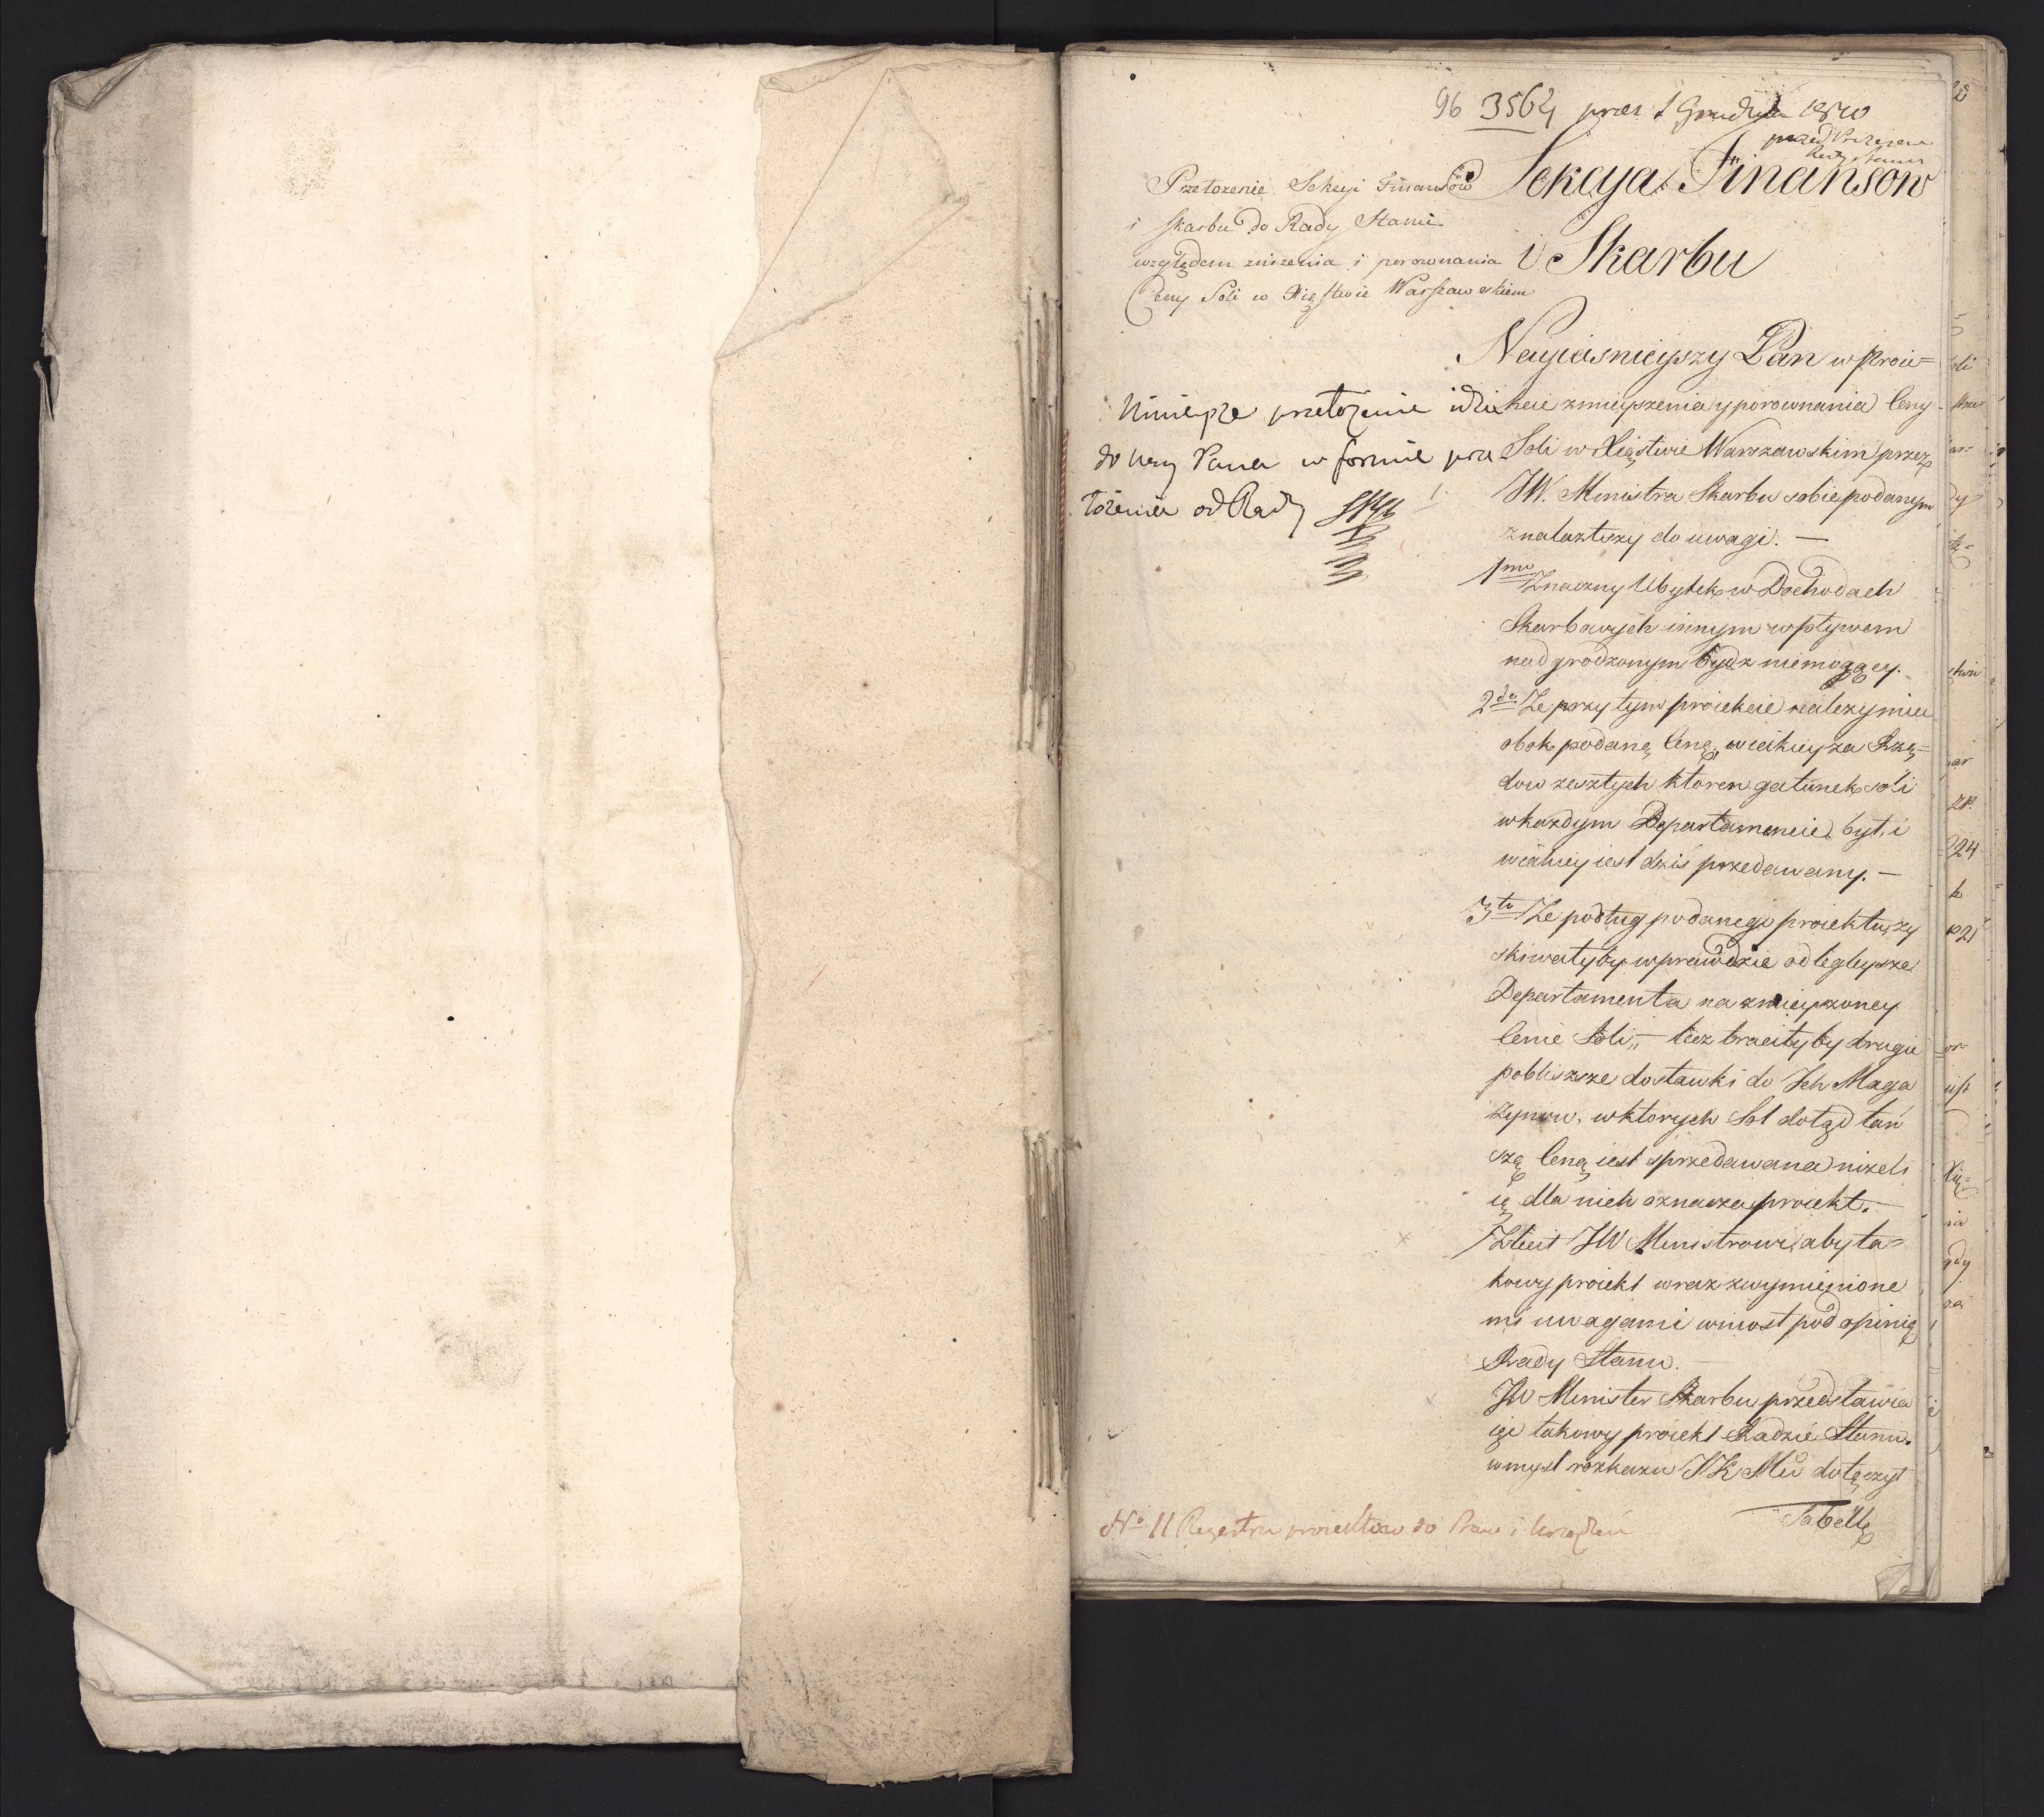 96 3564 prae 1 Grudnia 1810
przed Prezesem
Rady Stanu
Sekcya Finansow
i Skarbu
Przełożenie Sekcyi Finansów
i Skarbu do Rady Stanu
względem zniżenia i porownania
Ceny Soli w Xięstwie Warszawskiem
Ninieysze przełożenie idzie
do Nay Pana w formie prze
łożenia od Rady
Nayiasnieyszy Pan w Proie=
kcie zmieyszenia y porownania Ceny
Soli w Xięstwie Warszawskim przez
JW. Ministra Skarbu sobie podanym
znalazłszy do uwagi. —
1mo Znaczny Ubytek w Dochodach
Skarbowych innym wpływem
nadgrodzonym bydz niemogący.
2do Ze przy tym proiekcie należy mieć
obok podaną Cenę, w iakiey za Rzą=
dow zeszłych ktoren gatunek soli
w każdym Departamencie był, i
w iakiey iest dziś przedawany. —
3tio Ze podług podanego proiektu, zy
skiwałyby wprawdzie odlegleysze
Departamenta na zmieyszoney
Cenie Soli, — lecz traciłyby drugie
pobliższe dostawki do Ich Maga
zynow, w ktorych Sol dotąd tań
szą Ceną iest sprzedawana niżeli
ią dla nich oznacza proiekt. —
Zlecił JW Ministrowi, aby ta=
kowy proiekt wraz z wymienione
mi uwagami wniosł pod opinię
Rady Stanu. —
JW Minister Skarbu przedstawia
iąc takowy proiekt Radzie Stanu,
w myśl rozkazu JK Mci dołączył
Tabellę
No 11 Regestru proiektow do Praw i Urządzeń